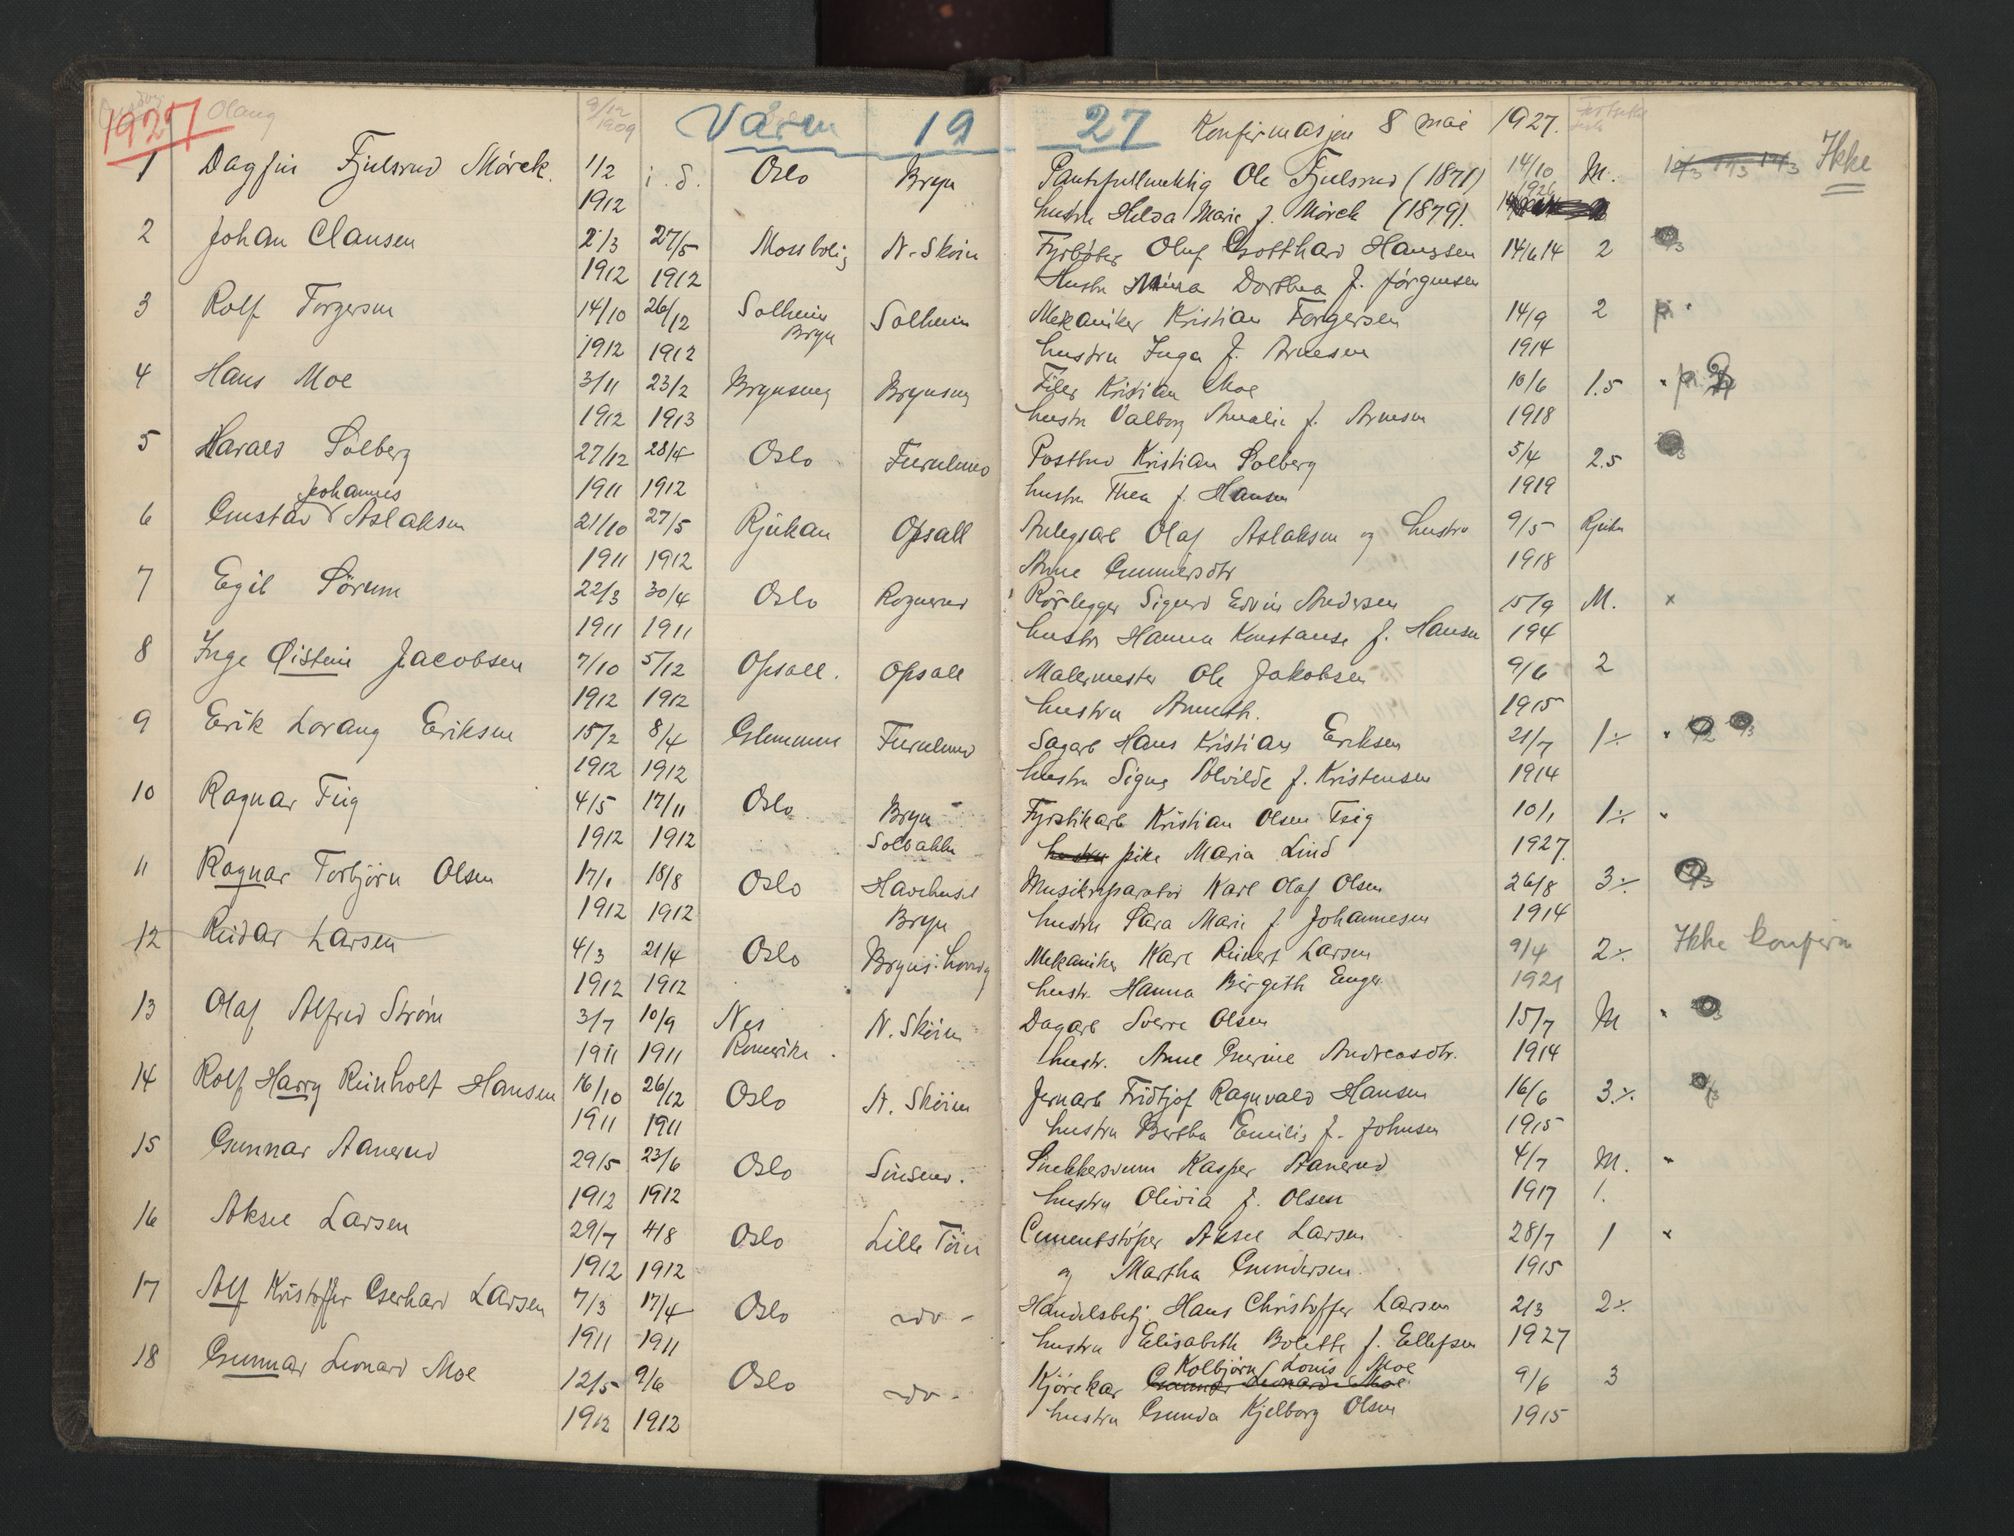 1927 Olaug 9/12 1909 Våren 19 27 Konfirmasjon 8 mai 1927.
1 Dagfin Fjulsrud Mörck. 1/2 i. d. Oslo Bryn Pantefullmektig Ole Fjulsrud (1871) 14/10 M. Ikke
1912 hustru Helda Marie f. Mörck (1879). 1926
2 Johan Clausen 2/3 27/5 Mossbolig N. Skøien Fyrbøter Oluf Gotthard Hanssen 14/6 14 2
1912 1912 Hustru Mina Dorthea f. Jörgensen
3 Rolf Torgersen 14/10 26/12 Solheim Bryn Solheim Mekaniker Kristian Torgersen 14/9 2
1912 1912 hustru Inga f. Arnesen 1914
4 Hans Moe 3/11 23/2 Brynseng Brynseng Filer Kristian Moe 10/6 1.5
1912 1913 hustru Valborg Amalie f. Arnesen 1918
5 Harald Solberg 27/12 28/4 Oslo Furulund Postbud Kristian Solberg 5/4 2.5
1911 1912 hustru Thea f. Hansen 1919
6 Gustav Johannes Aslaksen 21/10 27/5 Rjukan Opsall Anlegsarb Olaf Aslaksen og hustru 9/5 Rjukn
1911 1912 Anne Gunnersdtr 1918
7 Egil Sörum 22/3 30/4 Oslo Rognerud Rörlegger Sigurd Edvin Andersen 15/9 M. x
1911 1911 hustru Hanna Konstanse f. Hansen 194
8 Inge Øistein Jacobsen 7/10 5/12 Opsall. Opsall Malermester Ole Jakobsen 9/6 2
1912 1912 hustru Anneth. 1915
9 Erik Lorang Eriksen 15/2 8/4 Glemmen Furulund Sagarb Hans Kristian Eriksen 21/7 1⁒
1912 1912 hustru Signe Bolvilde f. Kristensen 1914
10 Ragnar Fiig 4/5 17/11 Oslo Bryn Fyrstikarb Kristian Olsen Fsig 10/1 1⁒
1912 1912 Solbakken hustru pike Maria Lind 1927.
11 Ragnar Torbjörn Olsen 17/1 18/8 Oslo Havehuset Musikreparatör Karl Olaf Olsen 26/8 3⁒
1912 1912 Bryn hustru Sara Marie f Johannesen 1914
12 Reidar Larsen 4/3 21/4 Oslo Mekaniker Karl Reinert Larsen 9/4 2⁒ Ikke konfirm
1912 1912 hustr. Hanna Birgith Enger 1921
13 Olaf Alfred Ström 3/7 10/9 Nes N. Skøien Dagarb Sverre Olsen 15/7 M
1911 1911 Romerike. hustr. Anne Gurine Andreasdtr. 1914
14 Rolf Harry Reinholt Hansen 16/10 26/12 Oslo N. Skøien Jernarb Fridtjof Ragnvald Hansen 16/6 3⁒
1911 1911 hustru Bertha Emilie f. Johnsen 1915
15 Gunnar Aanerud 29/5 23/6 Oslo Sinsen. Snekkersvenn Kasper Aanerud 4/7 M.
1912 1912 hustru Olivia f. Olsen 1917 1.
16 Aksel Larsen 29/7 4/8 Oslo Lille Tøien Cementstöper Aksel Larsen 28/7 1 x
1912 1912 og Martha Gundersen. 1915
17 Alf Kristoffer Gerhard Larsen 7/3 17/4 Oslo -do- Handelsbetj Hans Christoffer Larsen 2/3 2⁒
1911 1911 hustru Elisabeth Bolette f. Ellefsen 1927
18 Gunnar Leonard Moe 12/5 9/6 Oslo -do- Kjörekar Gunnar Leonard Moe Kolbjörn Louis Moe 9/6 3
1912 1912 hustru Gunda Kjelborg Olsen 1915